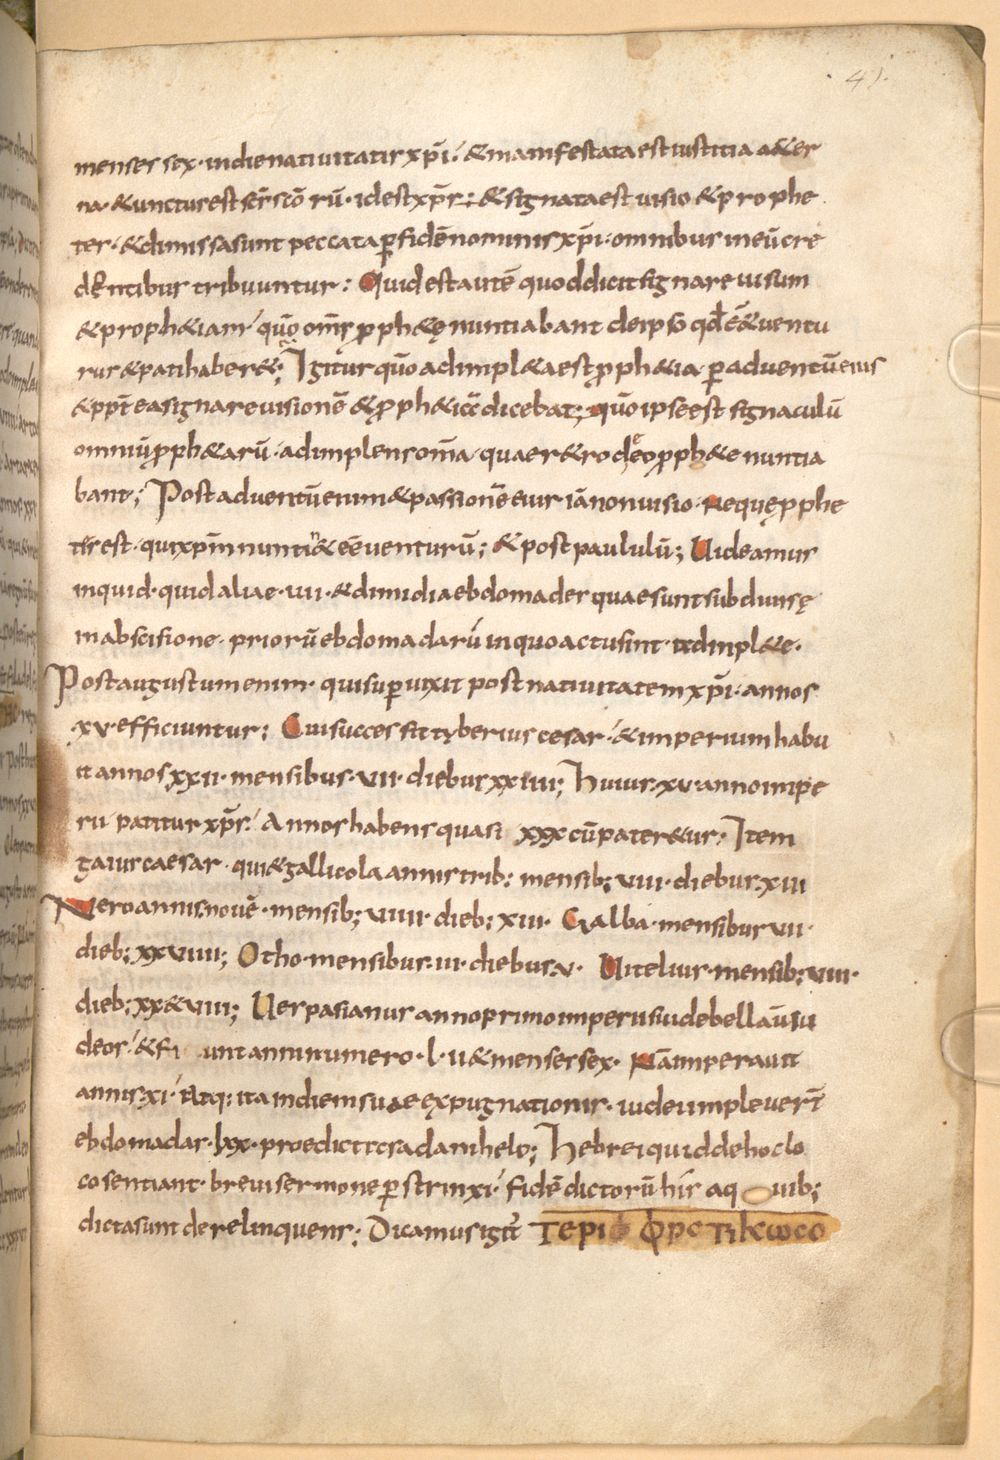 41.
menses sex · indienativitatis xp̄i · & manifestata est iustitia aeter
na · & unctus est sc̄s scōrū · id est xp̄s ; & signata est uisio & prophe
tes · & dimissa sunt peccata p fidē nominis xp̄i · omnibus in eū cre
dentibus tribuuntur ; Quid est autē quod dicit signare uisum
& proph&iam · quō om̄s proph&ę nuntiabant de ipso qđ ēē& uentu
rus & pati haber& ; Igitur quō adimpl&a est proph&ia p aduentū eius
& ppt̄ ea signare uisionē & proph&iā dicebat ; quō ipse est signaculū
omniū proph&arū · adimplens om̄a · quae r&ro de eo proph&e nuntia
bant ; Post aduentū enim & passionē eius iā non uisio · Neque pphe
tes est · qui xp̄m nunti& ēē uenturū ; & post paululū ; Uideamus
inquid · quid aliae · vii · & dimidia ebdomades quae sunt subdiuisę
in abscisione · priorū ebdomadarū in quo actu sint · adimpl&e ·
Post augustum enim · qui superuixit post nativitatem xp̄i · annos
·xv· efficiuntur ; Cui successit tyberius cesar · & imperium habu
it annos xxii · mensibus · vii · diebus xxiiii ; Huius · xv · anno impe
rii patitur xp̄s · Annos habens quasi xxx cū pateretur · Item
gaius caesar · qui & gallicola annis trib; mensib; viii · diebus · xiii
Nero annis · nouē · mensib; viiii · dieb; xiii · Galba · mensibus vii ·
dieb; xxviiii ; Otho · mensibus · iii · diebus · v · Uitelius · mensib; viii ·
dieb; xx & viii ; Uespasianus anno primo imperii sui debellauit iu
deos · & fi unt anni numero · l · ii & menses sex · Nā imperauit
annis · xi · Atq; ita in diem suae expugnationis · iudei impleuerīt
ebdomadas · lxx · praedictas a danihelo ; Hebrei quid de hoc lo
co sentiant · breui sermone p strinxi · fidē dictorū his a q uib;
dicta sunt derelinquens ; Dicamus igit̄ ΤΕΡΙ ΦΡC ΤΙΚΩCΟ